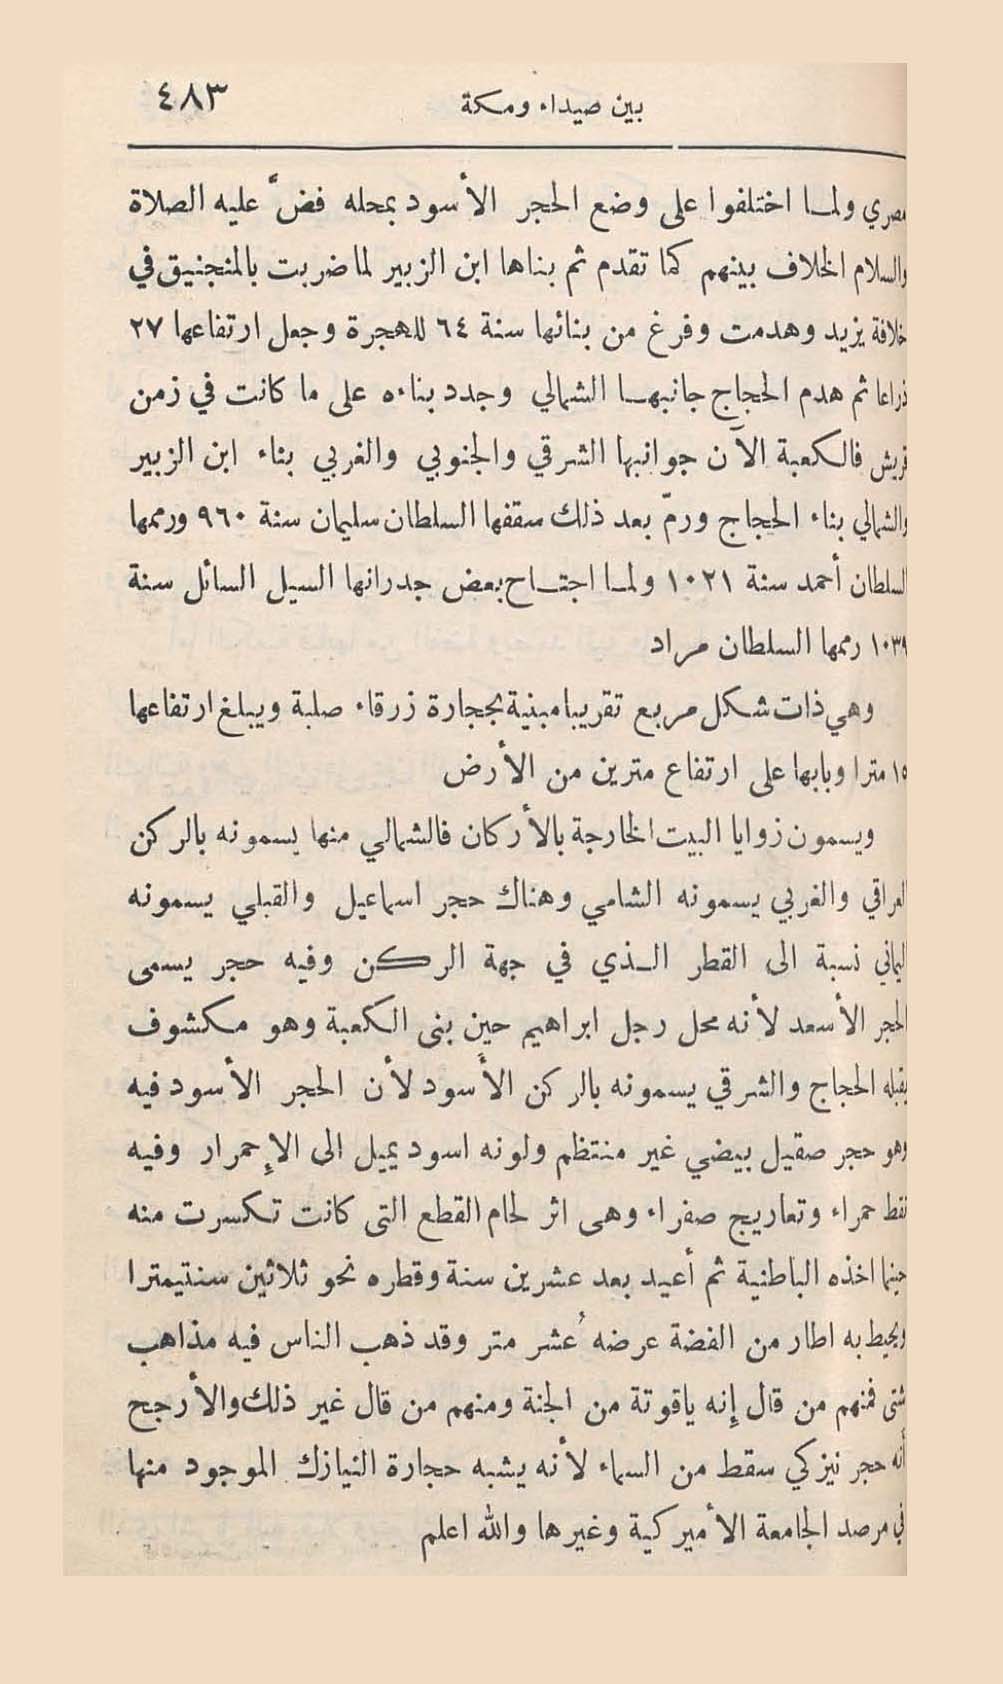 بين صيداء ومكة ٤٨٣
مصري ولمـا اختلفوا على وضع الحجر الأسود بمحله فضَّ عليه الصلاة
والسلام الخلاف بينهم كما تقدم ثم بناها ابن الزبير لما ضربت بالمنجنيق في
خلافة يزيد وهدمت وفرغ من بنائها سنة ٦٤ للهجرة وجعل ارتفاعها ٢٧
ذراعا ثم هدم الحجاج جانبهـا الشمالي وجدد بناءه على ما كانت في زمن
قريش فالكعبة الآن جوانبها الشرقي والجنوبي والغربي بناء ابن الزبير
والشمالي بناء الحجاج ورمّ بعد ذلك سقفها السلطان سليمان سنة ٩٦٠ ورممها
السلطان أحمد سنة ١٠٢١ ولمـا اجتـاح بعض جدرانها السيل السائل سنة
١٠٣٩ رممها السلطان مراد
وهي ذات شكل مربع تقريبا مبنية بحجارة زرقاء صلبة ويبلغ ارتفاعها
١٥ مترا وبابها على ارتفاع مترين من الأرض
ويسمون زوايا البيت الخارجة بالأركان فالشمالي منها يسمونه بالركن
العراقي والغربي يسمونه الشامي وهناك حجر اسماعيل والقبلي يسمونه
اليماني نسبة الى القطر الـذي في جهة الركن وفيه حجر يسمى
الحجر الأسعد لأنه محل رجل ابراهيم حين بنى الكعبة وهو مكشوف
يقبله الحجاج والشرقي يسمونه بالركن الأسود لأن الحجر الأسود فيه
وهو حجر صقيل بيضي غير منتظم ولونه اسود يميل الى الإحمرار وفيه
نقط حمراء وتعاريج صفراء وهى اثر لحام القطع التى كانت تكسرت منه
حينما اخذه الباطنية ثم أعيد بعد عشرين سنة وقطره نحو ثلاثين سنتيمترا
ويحيط به اطار من الفضة عرضه عُشر متر وقد ذهب الناس فيه مذاهب
شتى فمنهم من قال إنه ياقوتة من الجنة ومنهم من قال غير ذلك والأرجح
أنه حجر نيزكي سقط من السماء لأنه يشبه حجارة النيازك الموجود منها
في مرصد الجامعة الأميركية وغيرها والله اعلم